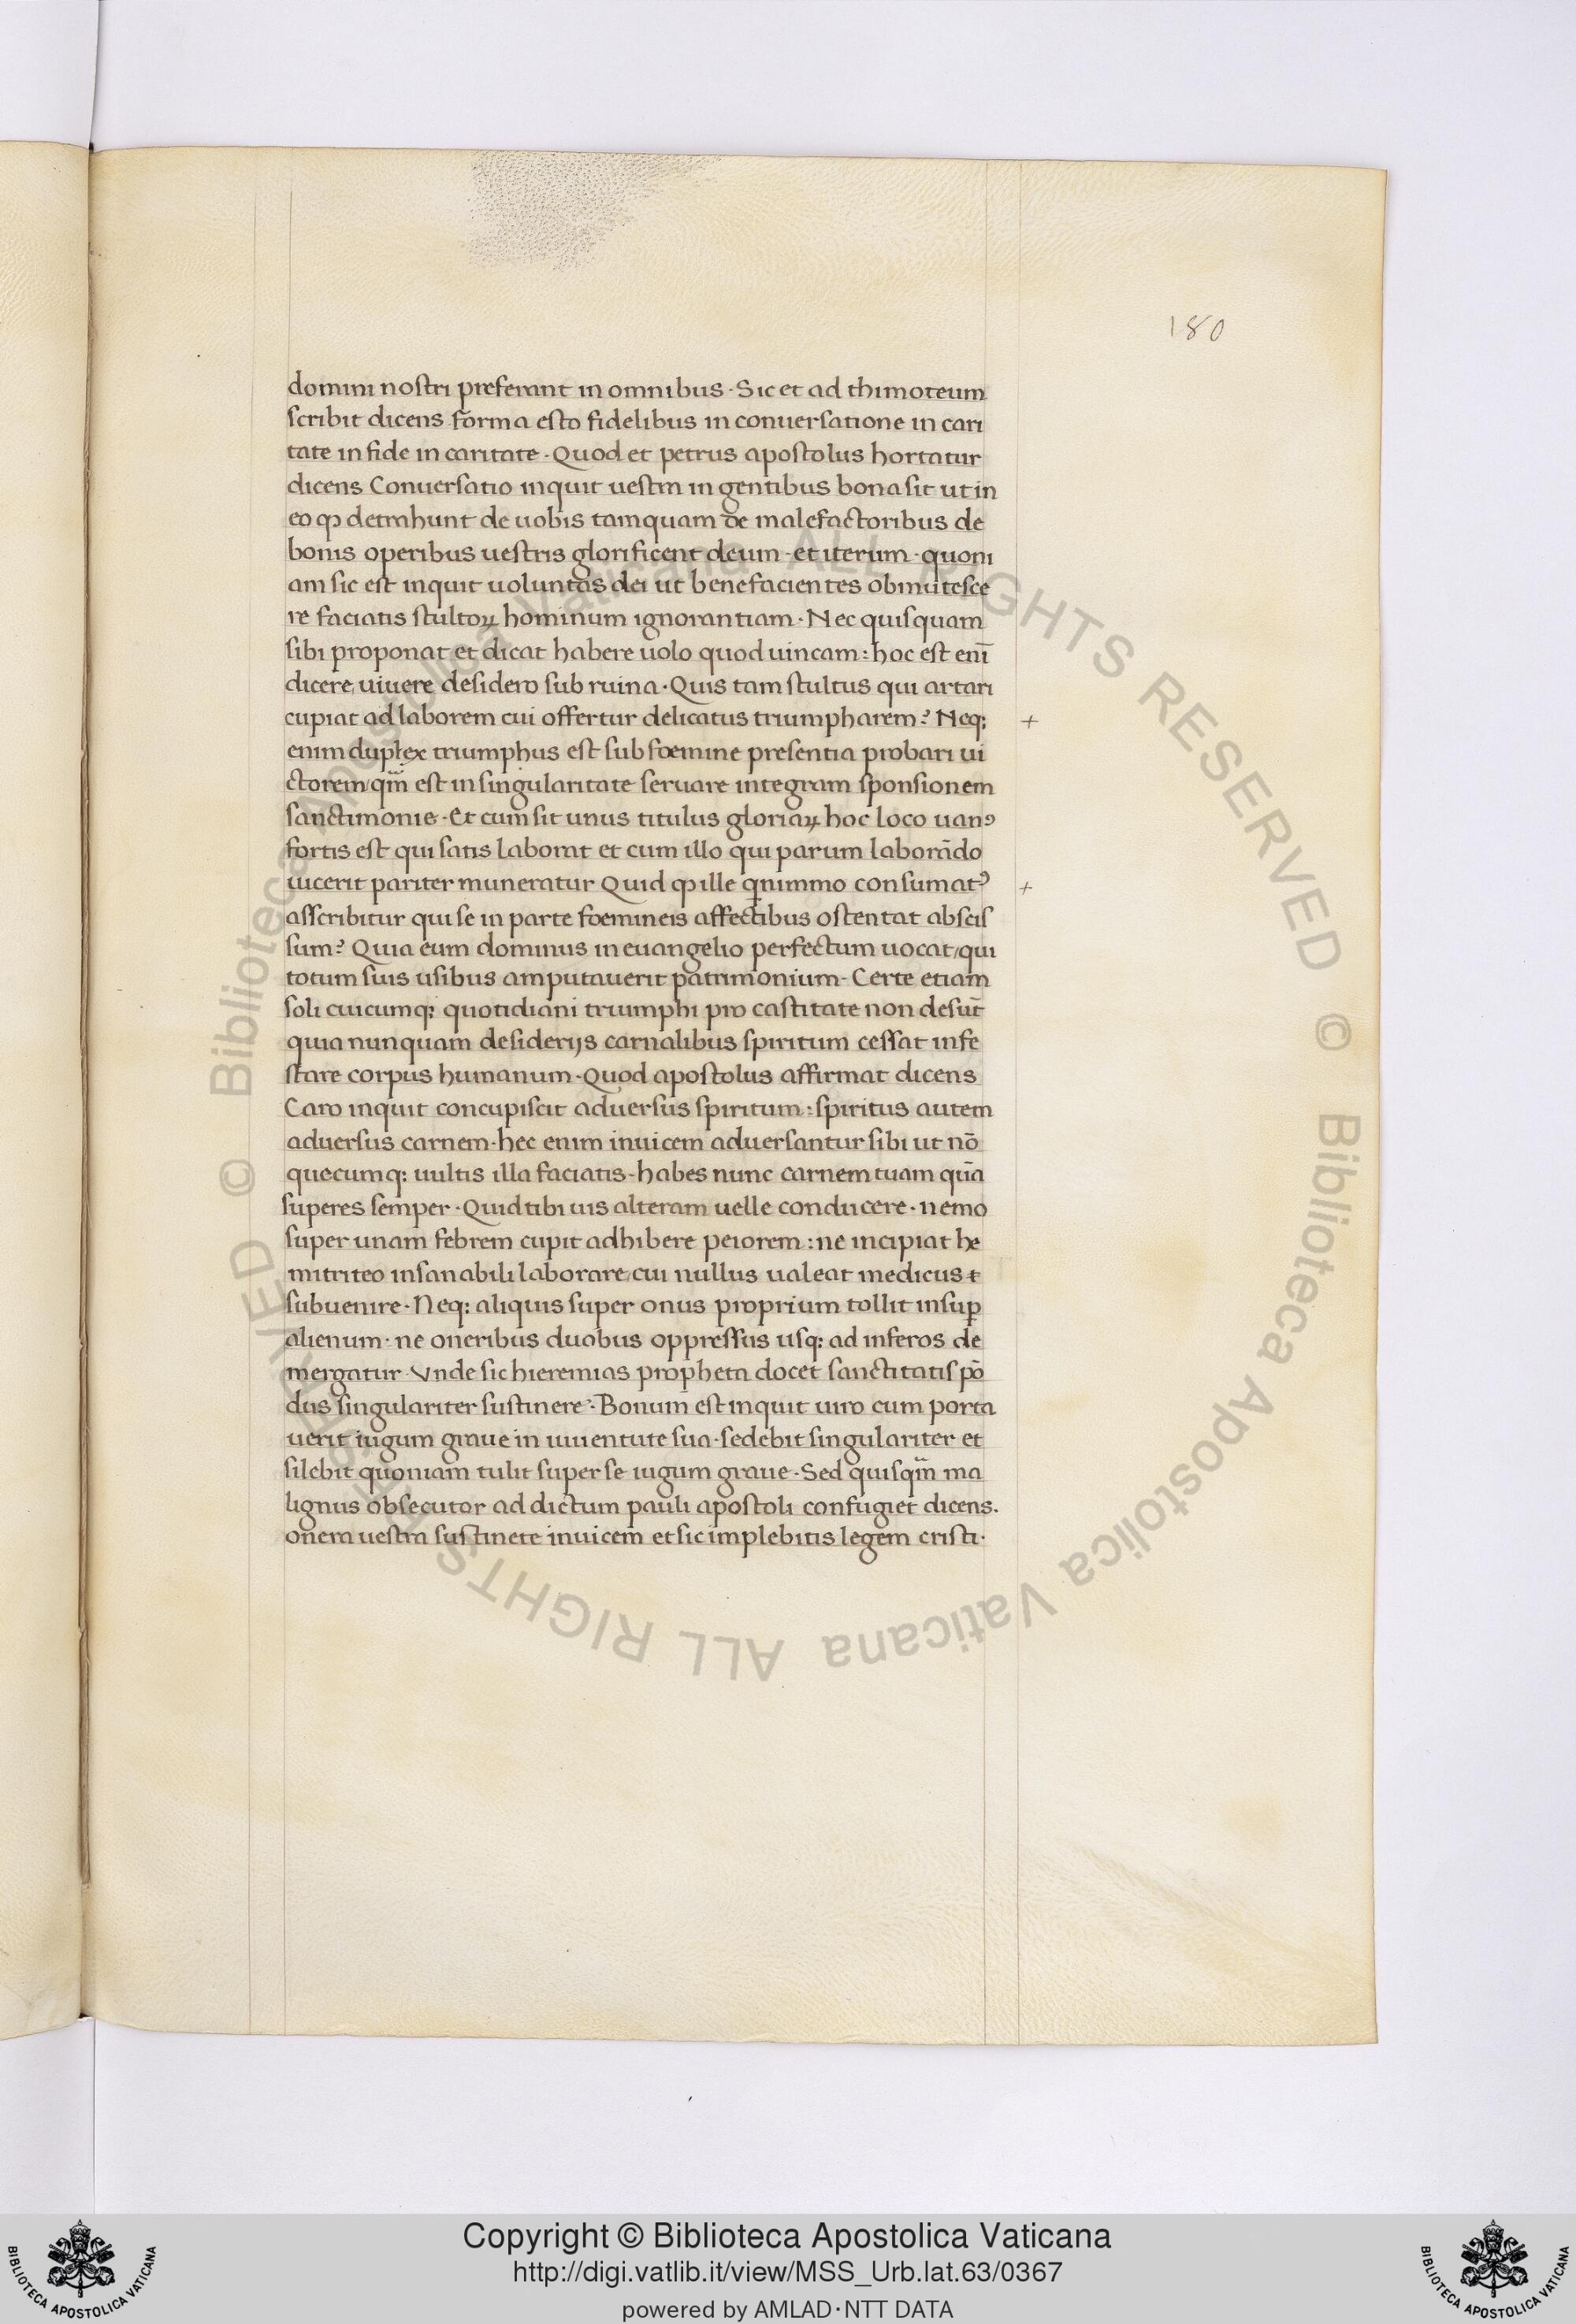 180
domini nostri preferant in omnibus · Sic et ad thimoteum
scribit dicens forma esto fidelibus in conuersatione in cari
tate in fide in caritate · Quod et petrus apostolus hortatur
dicens Conuersatio inquit uestra in gentibus bona sit ut in
eo ꝙ detrahunt de uobis tamquam de malefactoribus de
bonis operibus uestris glorificent deum · et iterum · quoni
am sic est inquit uoluntas dei ut benefacientes obmutesce
re faciatis stultoꝝ hominum ignorantiam · Nec quisquam
sibi proponat et dicat habere uolo quod uincam : hoc est eni̅
dicere uiuere desidero sub ruina · Quis tam stultus qui artari
cupiat ad laborem cui offertur delicatus triumpharem ? Neq; +
enim duplex triumphus est sub foemine presentia probari ui
ctorem / qm̅ est in singularitate seruare integram sponsionem
sanctimonie · Et cum sit unus titulus gloriaꝝ hoc loco uanꝰ
fortis est qui satis laborat et cum illo qui parum labora̅do
uicerit pariter muneratur Quid ꝙ ille q̅nimmo consumatꝰ +
asscribitur qui se in parte foemineis affectibus ostentat abscis
sum ? Quia eum dominus in euangelio perfectum uocat / qui
totum suis usibus amputauerit patrimonium · Certe etiam
soli cuicumq; quotidiani triumphi pro castitate non desu̅t
quia nunquam desiderijs carnalibus spiritum cessat infe
stare corpus humanum · Quod apostolus affirmat dicens
Caro inquit concupiscit aduersus spiritum : spiritus autem
aduersus carnem · hec enim inuicem aduersantur sibi ut no̅
quecumq; uultis illa faciatis · habes nunc carnem tuam qua̅
superes semper · Quid tibi uis alteram uelle conducere · nemo
super unam febrem cupit adhibere peiorem : ne incipiat he
mitriteo insanabili laborare / cui nullus ualeat medicus
subuenire · Neq; aliquis super onus proprium tollit insuꝑ
alienum · ne oneribus duobus oppressus usq; ad inferos de
mergatur · Vnde sic hieremias propheta docet sanctitatis po̅
dus singulariter sustinere · Bonum est inquit uiro cum porta
uerit iugum graue in iuuentute sua · sedebit singulariter et
silebit quoniam tulit super se iugum graue · Sed quisqm̅ ma
lignus obsecutor ad dictum pauli apostoli confugiet dicens.
onera uestra sustinete inuicem et sic implebitis legem cristi ·
© Biblioteca Apostolica Vaticana ALL RIGHTS RESERVED
© Biblioteca Apostolica Vaticana ALL RIGHTS RESERVED
Copyright © Biblioteca Apostolica Vaticana
http://digi.vatlib.it/view/MSS_Urb.lat.63/0367
powered by AMLAD·NTT DATA
BIBLIOTECA APOSTOLICA VATICANA
BIBLIOTECA APOSTOLICA VATICANA